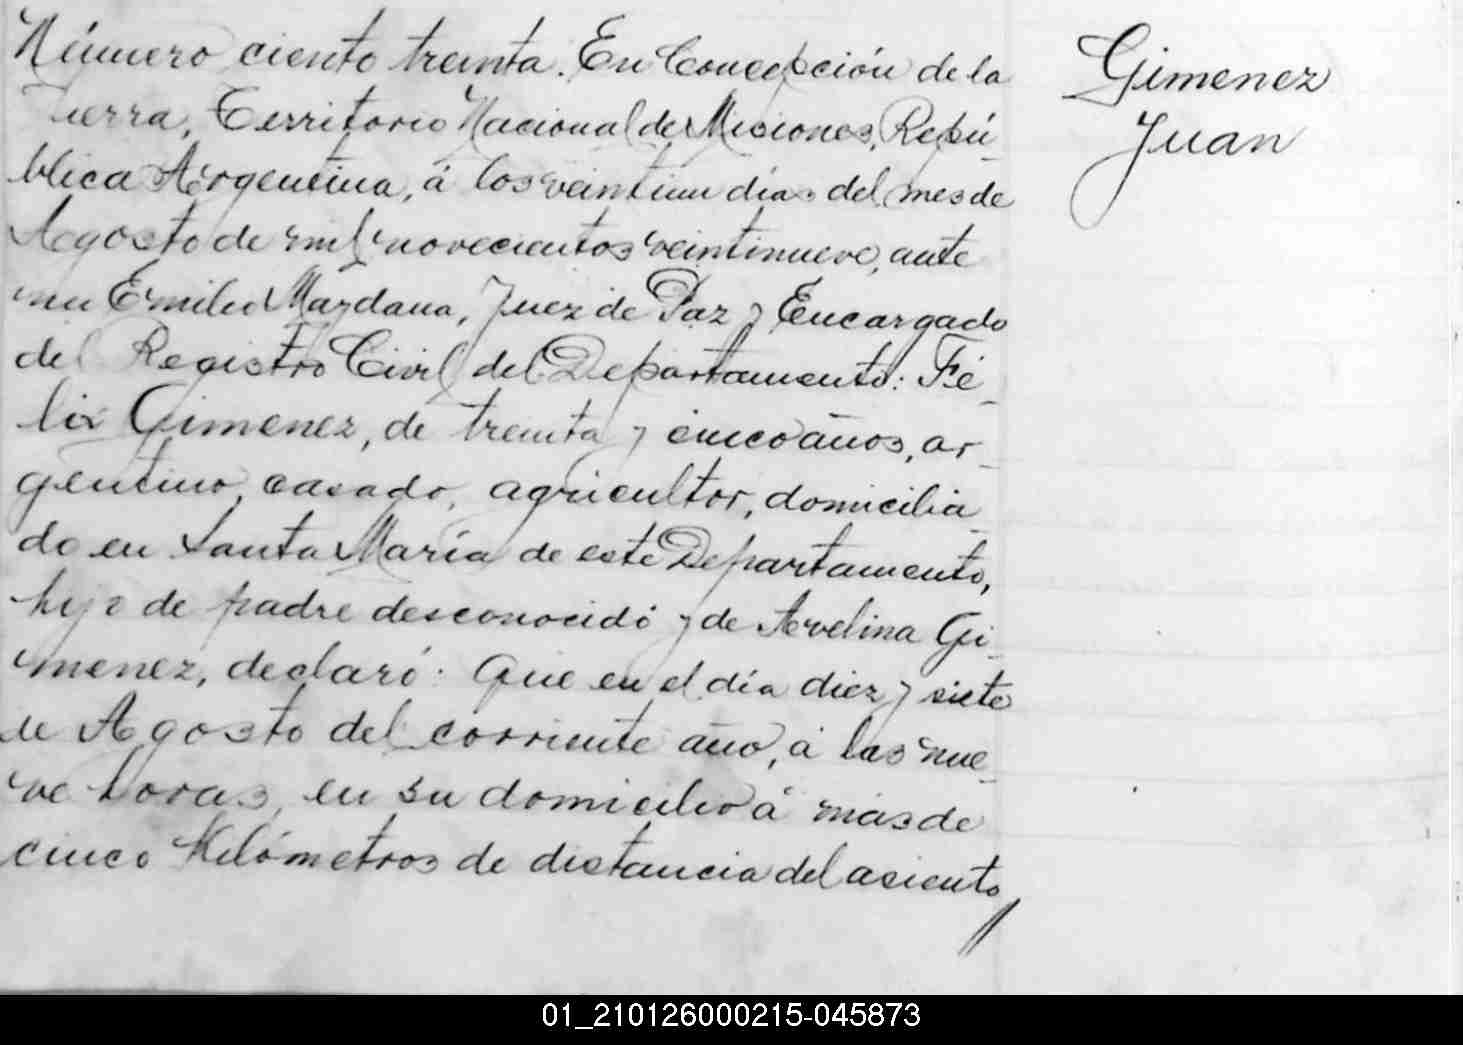 Número ciento treinta. En Concepción de la
Sierra, Territorio Nacional de Misiones, Repú-
blica Argentina, á los veintiun días del mes de
Agosto de mil novecientos veintinueve, ante
mi Emilio Maydana, Juez de Paz y Encargado
del Registro Civil del Departamento: Fé-
lix Gimenez, de treinta y cinco años, ar-
gentino, casado, agricultor, domicilia-
do en Santa María de este Departamento,
hijo de padre desconocido y de Avelina Gi-
menez, declaró: Que en el día diez y siete
de Agosto del corriente año, á las nue-
ve horas, en su domicilio á más de
cinco Kilómetros de distancia del asiento
//
Gimenez
Juan
01_210126000215-045873